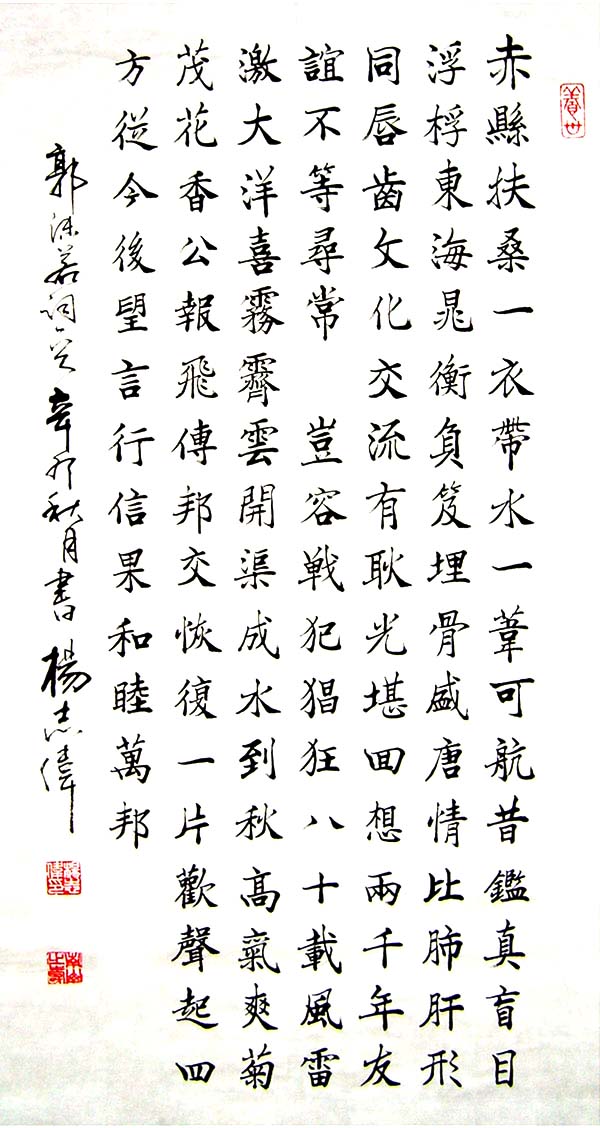 赤縣扶桑一衣帶水一葦可航昔鑑真盲目
浮桴東海晁衡負笈埋骨盛唐情比肺肝形
同唇齒文化交流有耿光堪回想兩千年友
誼不等尋常 豈容戰犯猖狂八十載風雷
激大洋喜霧霽雲開渠成水到秋高氣爽菊
茂花香公報飛傳邦交恢復一片歡聲起四
方從今後望言行信果和睦萬邦
郭沫若詞一首 辛卯秋月書 楊志偉